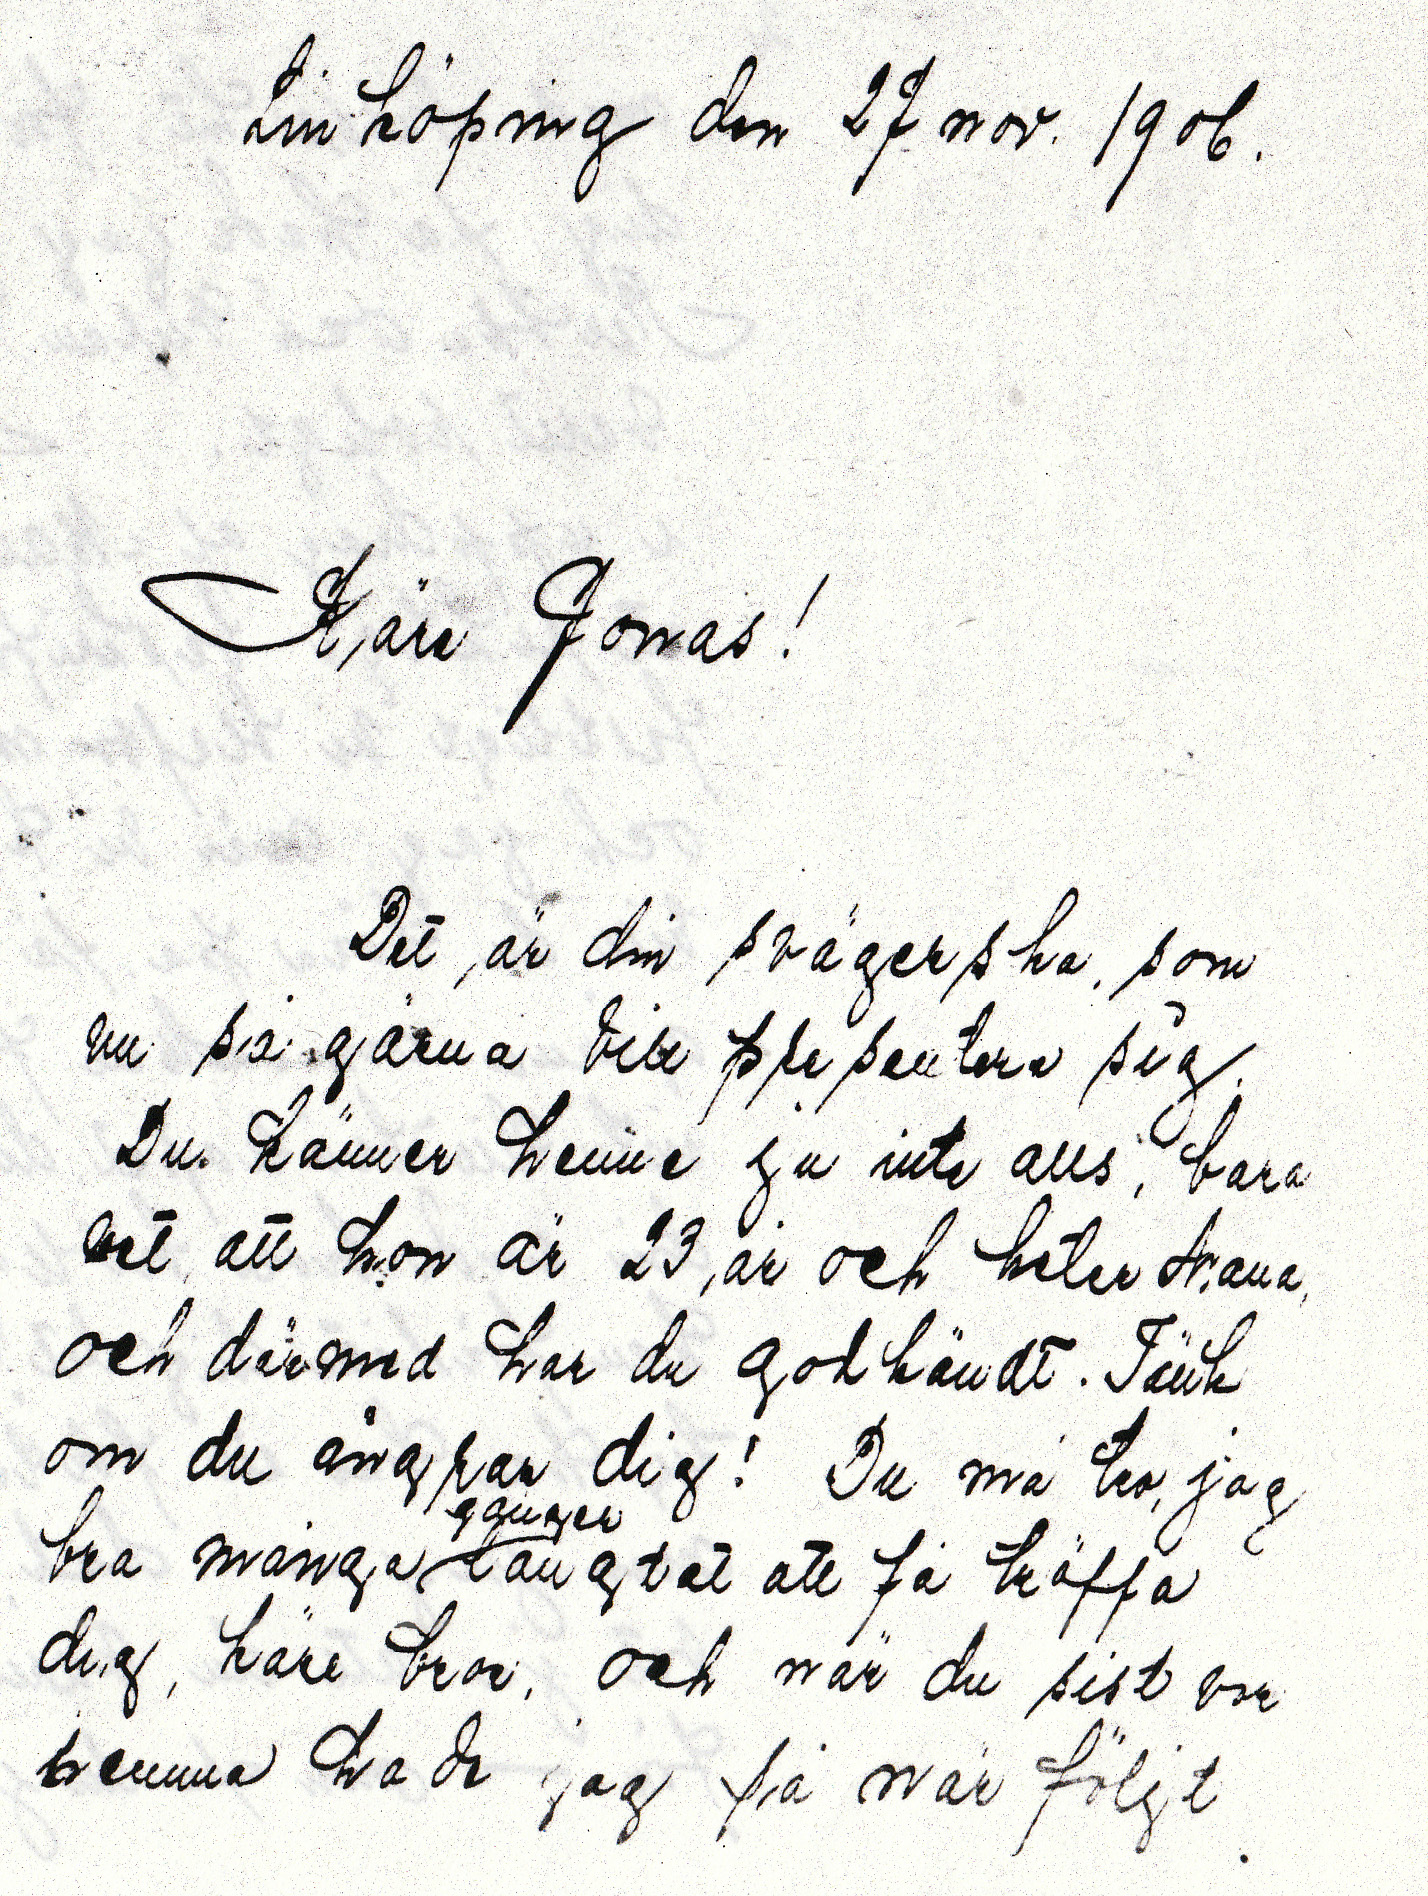 Linköping den 27 nov. 1906.
Käre Jonas!
Det är din svägerska, som
nu så gärna vill presentera sig.
Du känner henne ju inte alls, bara
vet att hon är 23 år och heter Nana,
och därmed har du godkändt. Tänk
om du ångrar dig! Du må tro, jag
gånger
bra många längtat att få träffa
dig, käre bror, och när du sist var
hemma hade jag så när följt